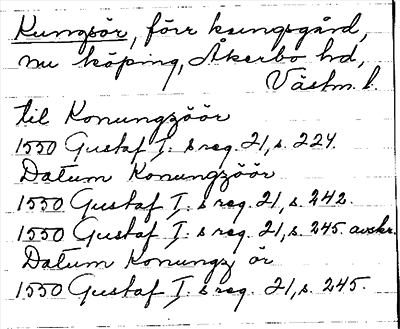 Kungsör, förr kungsgård,
nu köping, Åkerbo hd,
Västm. l.
till Konungzöör
1550 Gustaf I:s reg. 21, s. 224.
Datum Konungzöör
1550 Gustaf I:s reg. 21, s. 242.
1550 Gustaf I:s reg. 21, s. 245. avskr.
Datum Konungz ör
1550 Gustaf I:s reg. 21, s. 245.